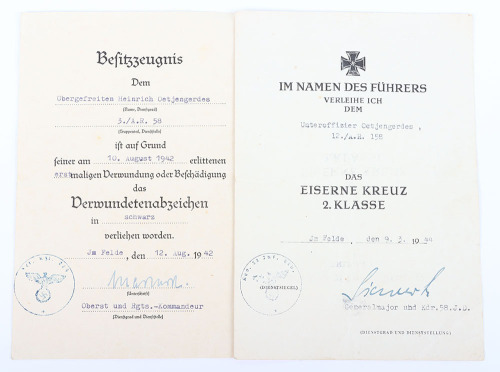 Besitzzeugnis
Dem
Obergefreiten Heinrich Oetjengerdes
(Name, Dienstgrad)
3./A.R. 58
(Truppenteil, Dienststelle)
ist auf Grund
seiner am 10. August 1942 erlittenen
erstmaligen Verwundung oder Beschädigung
das
Verwundetenabzeichen
in schwarz
verliehen worden.
Jm Felde, den 12. Aug. 1942
(Unterschrift)
Oberst und Rgts.-Kommandeur
(Dienstgrad und Dienststelle)
IM NAMEN DES FÜHRERS
VERLEIHE ICH
DEM
Unteroffizier Oetjengerdes,
12./A.R. 158
DAS
EISERNE KREUZ
2. KLASSE
Jm Felde, den 9. 2. 1944
(DIENSTSIEGEL)
Generalmajor und Kdr.58.J.D.
(DIENSTGRAD UND DIENSTSTELLUNG)